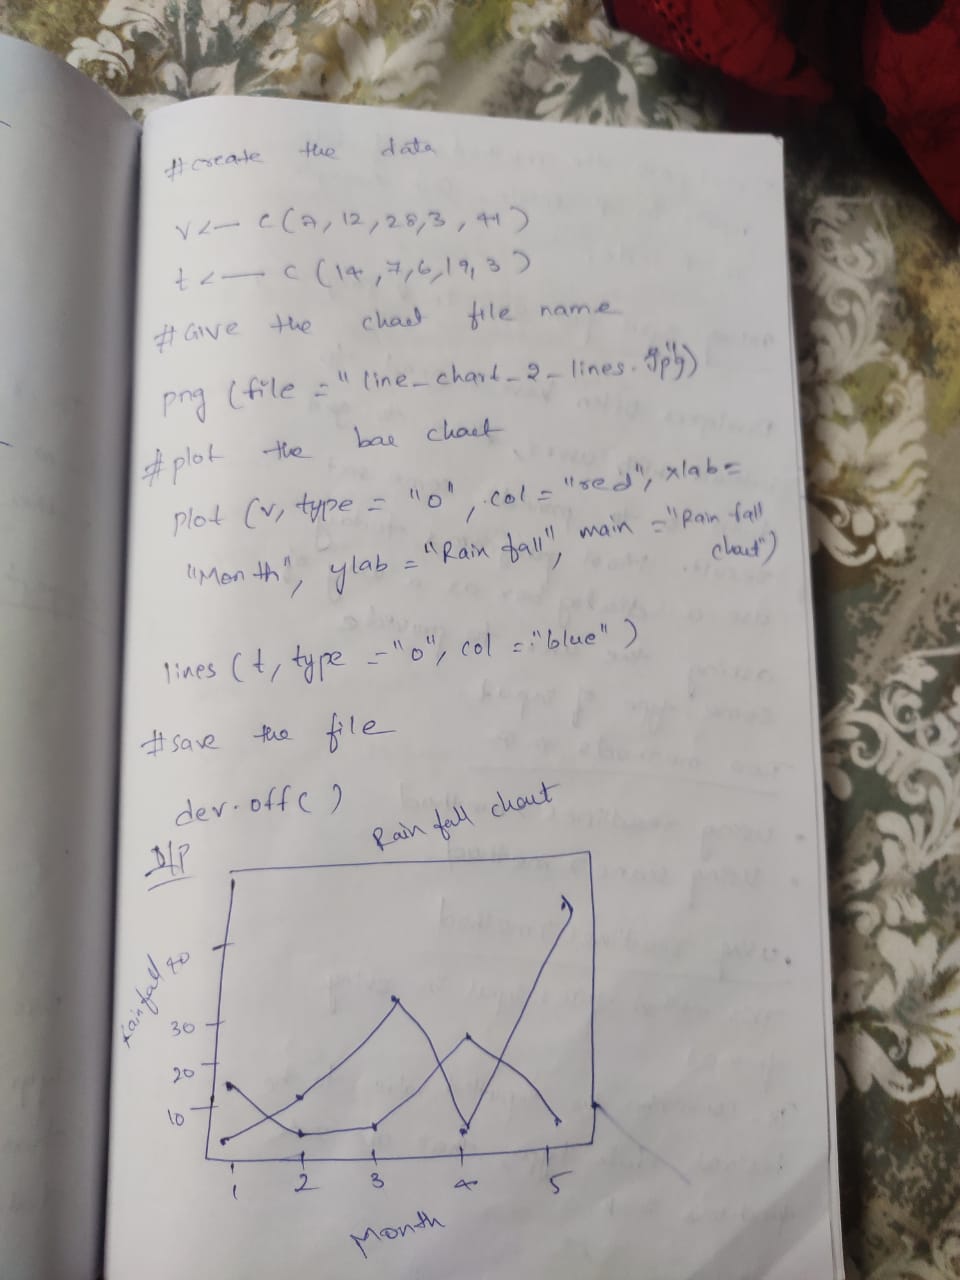 #create the data
v<— c(7,12,28,3,41)
t<— c(14,7,6,19,3)
#Give the chart file name
png (file = "line_chart_2_lines.jpg")
#plot the bar chart
plot (v, type = "o", col = "red", xlab =
"Month", ylab = "Rain fall", main = "Rain fall
chart")
lines (t, type = "o", col = "blue")
#save the file
dev.off()
O/P
Rain fall chart
Rainfall
40
30
20
10
1 2 3 4 5
Month